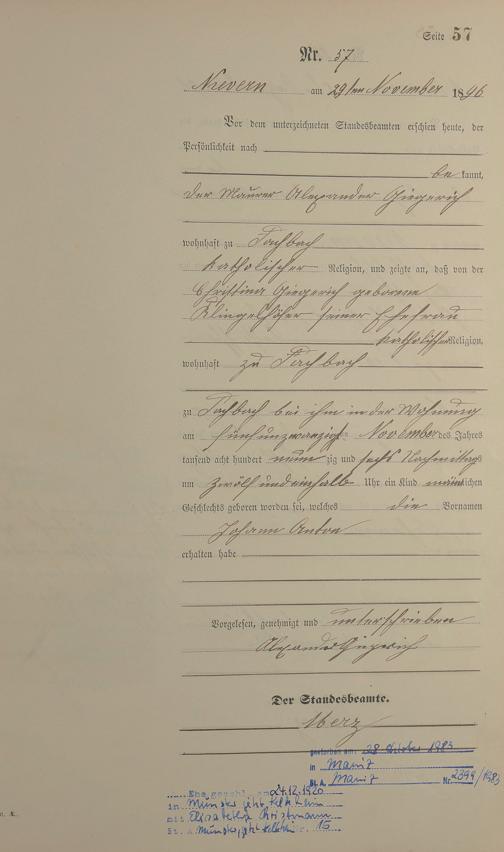 Seite 57
Nr. 57
Nievern am 29ten November 1896.
Vor dem unterzeichneten Standesbeamten erschien heute, der
Persönlichkeit nach
bekannt,
der Maurer Alexander Giegerich
wohnhaft zu Fachbach
katholischer Religion, und zeigte an, daß von der
Christina Giegerich geborene
Klingelhöfer seiner Ehefrau
katholischer Religion,
wohnhaft zu Fachbach
zu Fachbach bei ihm in der Wohnung
am fünfundzwanzigsten November des Jahres
tausend acht hundert neunzig und sechs Nachmittags
um zwölf und einhalb Uhr ein Kind männlichen
Geschlechts geboren worden sei, welches die Vornamen
Johann Anton
erhalten habe
Vorgelesen, genehmigt und unterschrieben
Alexander Giegerich
Der Standesbeamte.
Merz
gestorben am: 28. Oktober 1983
in Mainz
St. A. Mainz Nr. 2399/1983
Ehe geschl. am 24.12.1920
in Münster jetzt Kelkheim
mit Elisabetha Christmann
St. A. Münster, jetzt Kelkheim 16